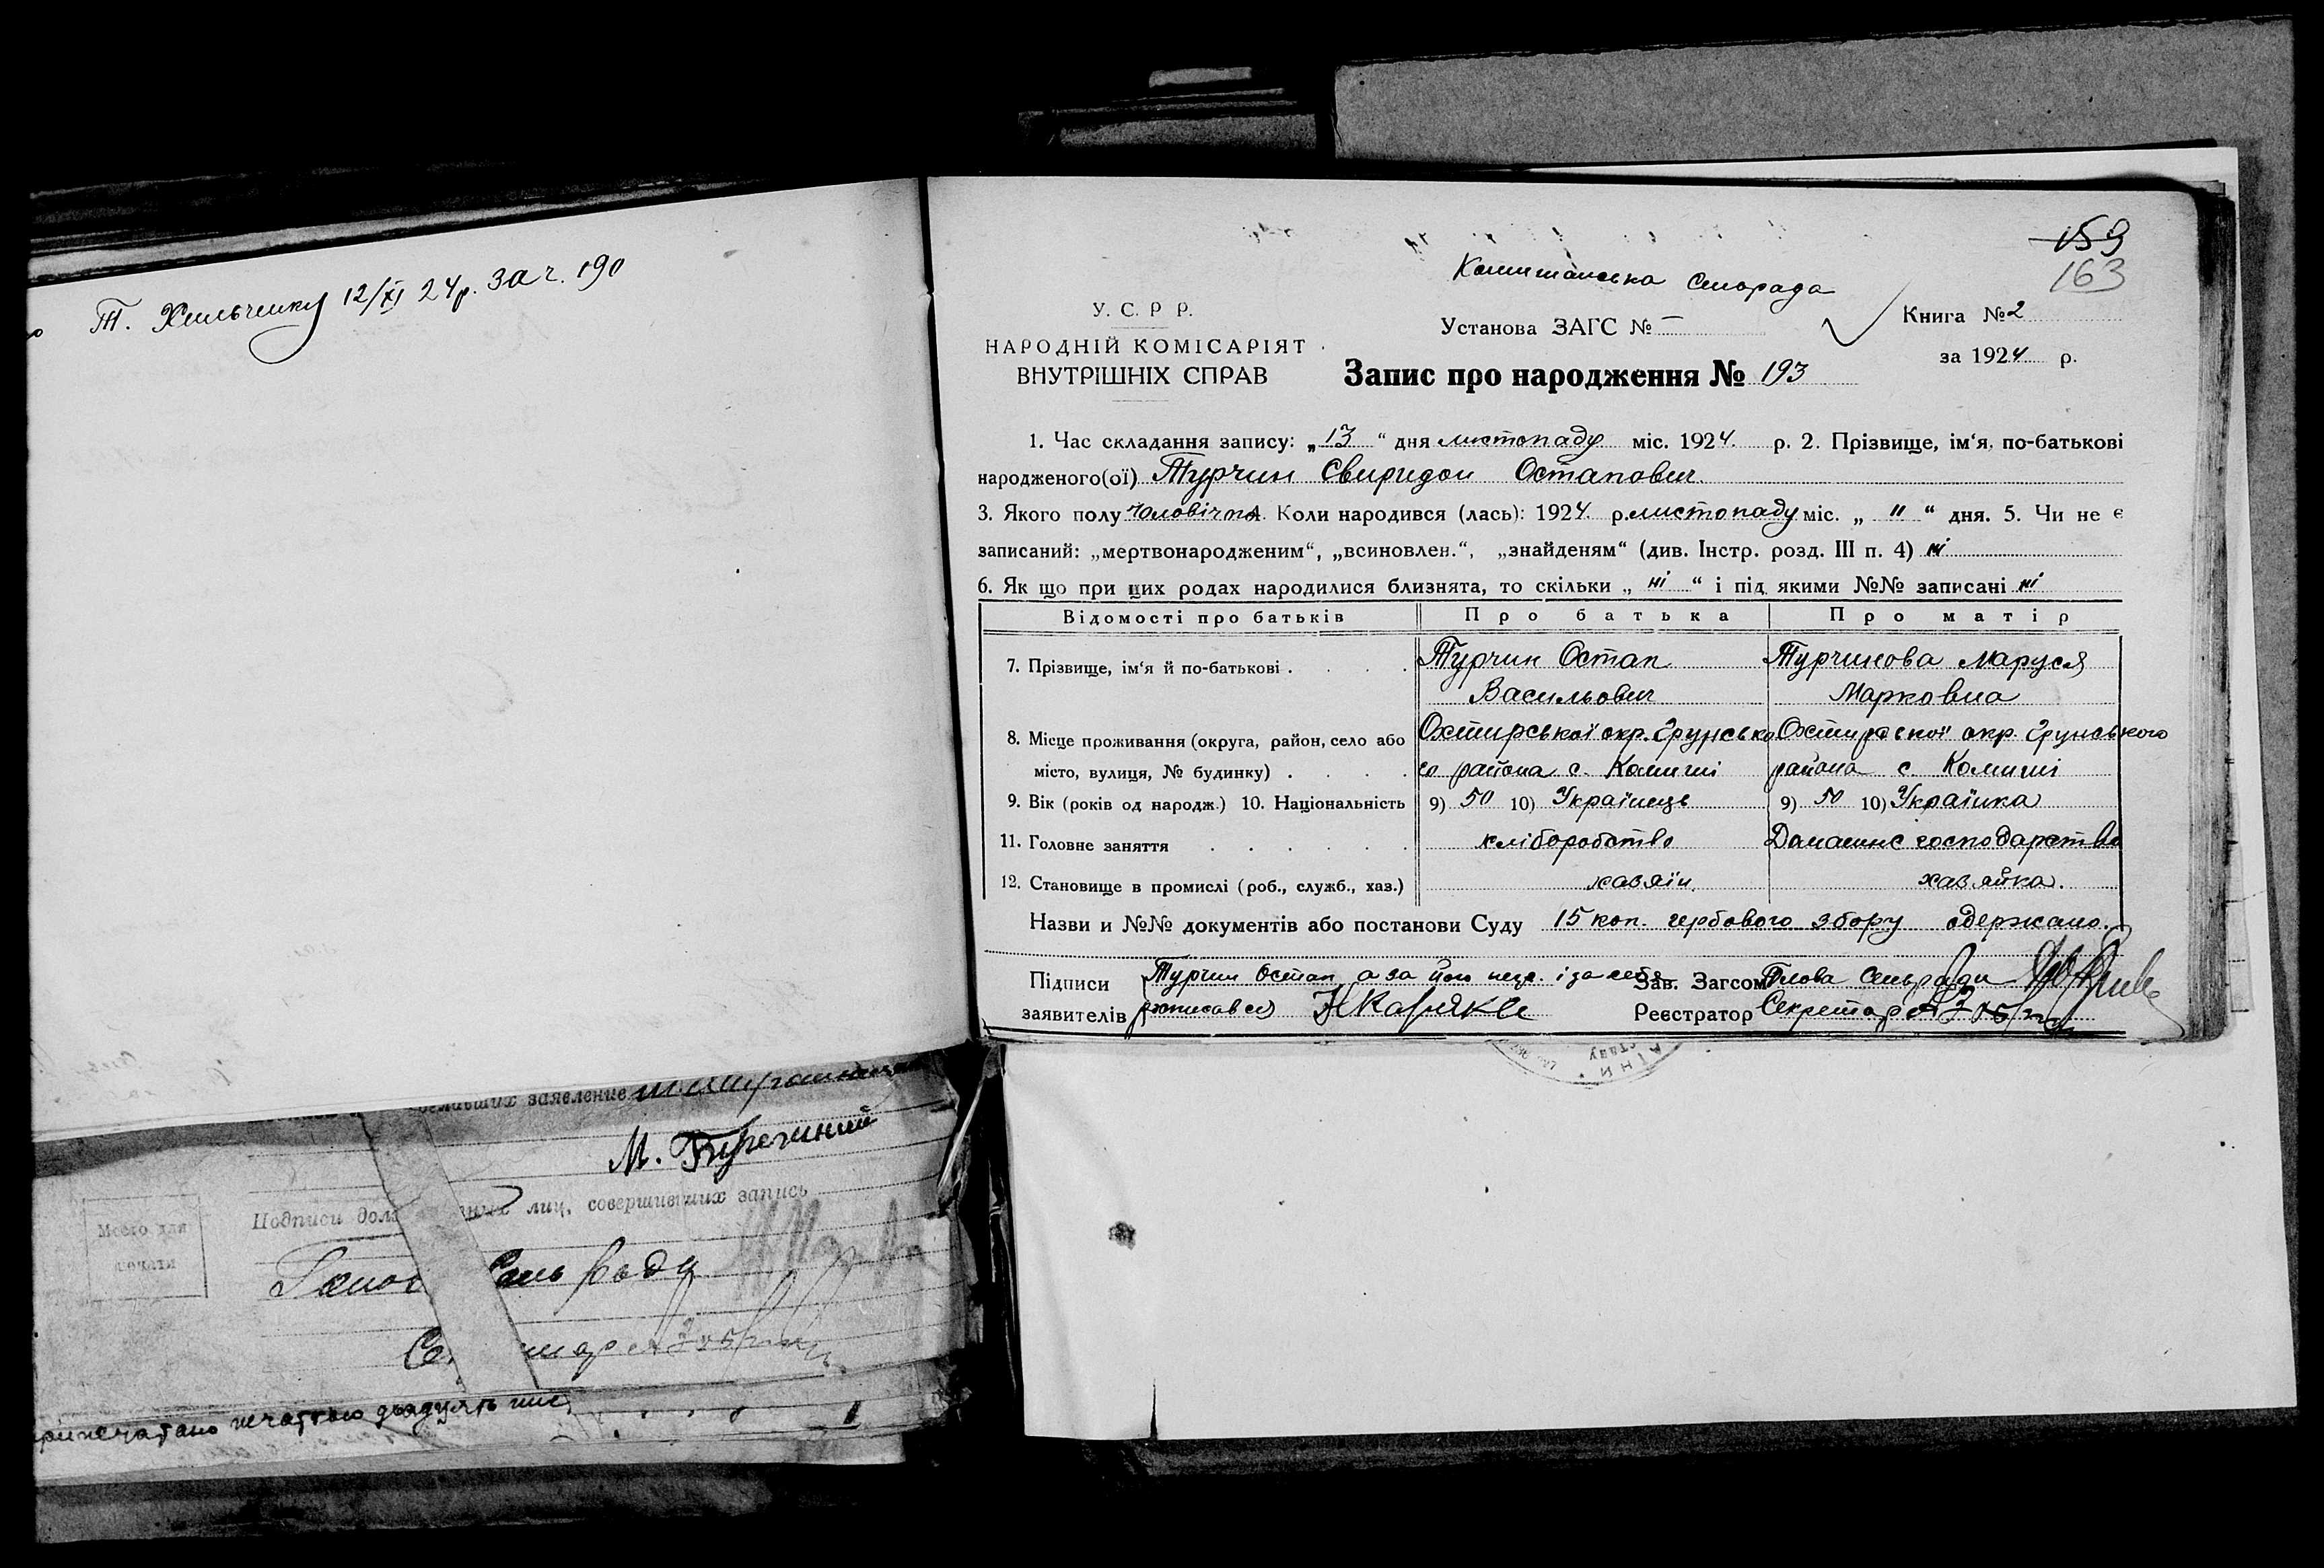 Т. Хильченку 12/XI 24р. За ч. 190
елавших заявление
М.
Место для печати
Подписи дол ных лиц, совершивших запись
Голов Сель Ради
Се тар
припечатано печаттю двадцять
159
163
Комишанська Сільрада
У. С. Р Р.
НАРОДНІЙ КОМІСАРІЯТ
ВНУТРІШНІХ СПРАВ
Установа ЗАГС № —
Книга № 2
за 1924 р.
Запис про народження № 193
1. Час складання запису: „13“ дня листопаду міс. 1924 р. 2. Прізвище, ім‘я, по-батькові
народженого(ої) Турчин Свиридон Остапович
3. Якого полу чоловіч Коли народився (лась): 1924 р. листопаду міс. „ 11 “ дня. 5. Чи не є
записаний: „мертвонародженим“, „всиновлен.“, „знайденям“ (див. Інстр. розд. III п. 4) ні
6. Як що при цих родах народилися близнята, то скільки „ ні “ і під якими №№ записані ні
Відомості про батьків Про батька Про матір
7. Прізвище, ім‘я й по-батькові . . . . Турчин Остап Турчинова Маруся
Васильович Марковна
8. Місце проживання (округа, район, село або Охтирської окр. Грунсько Охтирської окр. Грунського
місто, вулиця, № будинку) . . . . го района с. Комиші района с. Комиші
9. Вік (років од народж.) 10. Національність 9) 50 10) Українець 9) 50 10) Українка
11. Головне заняття . . . . . . хліборобство Домашнє господарство
12. Становище в промислі (роб., служб., хаз.) хазяїн хазяйка.
Назви и №№ документів або постанови Суду 15 коп. гербового збору одержано.
Підписи Турчин Остап а за його негр. і за себе Зав. Загсом Голова Сельради
заявителів росписався Реєстратор Секретар